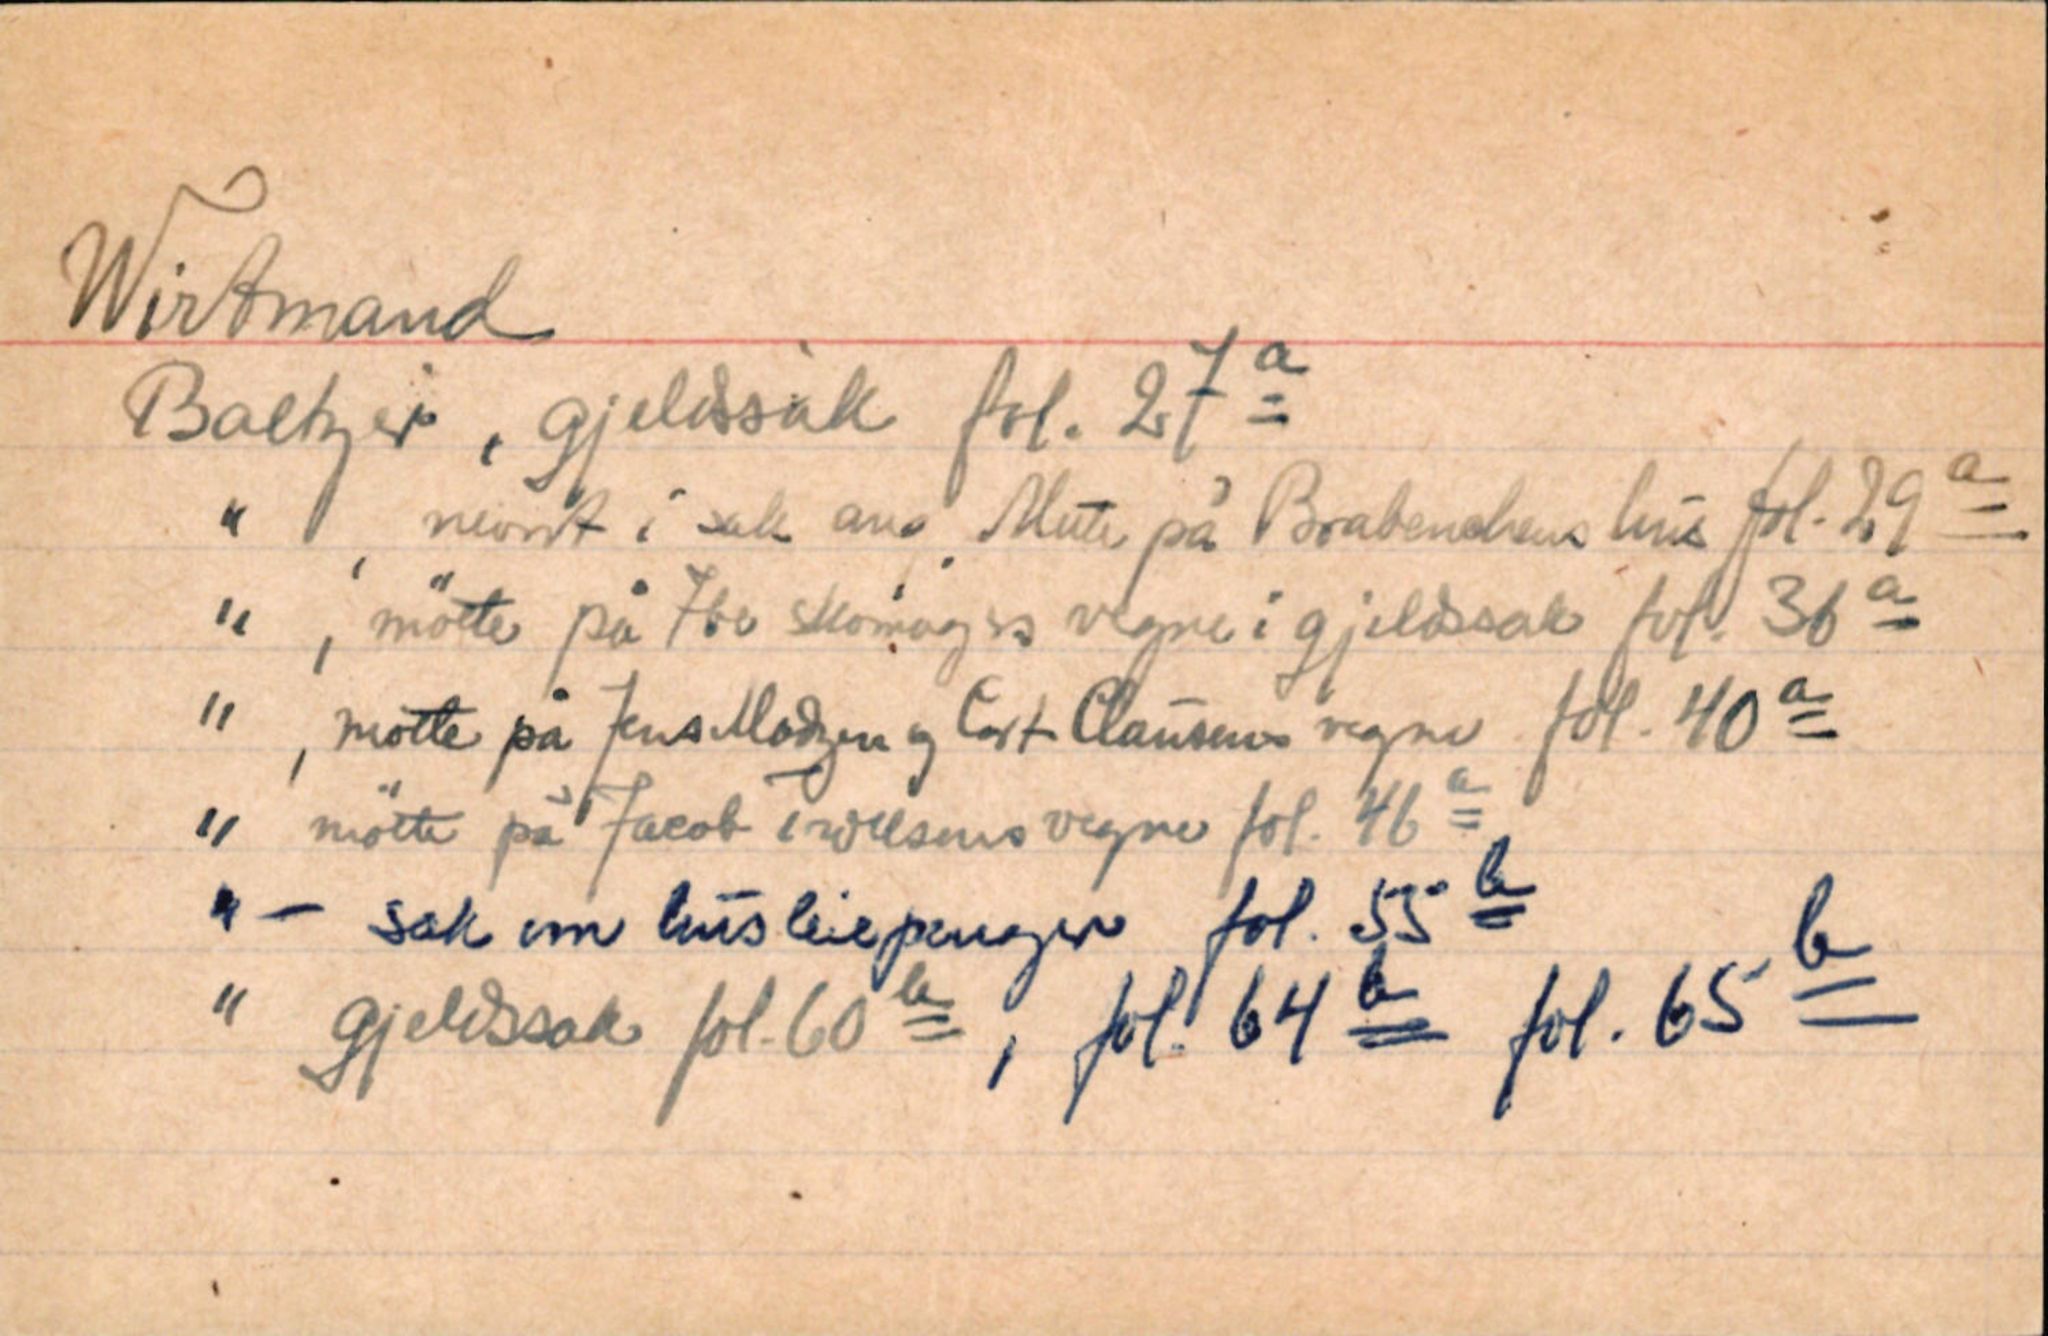 Wirtmand
Baltzer, gjeldssak fol. 27ª
" , nevnt i sak ang. på Brabenders hus fol. 29ª
" , mötte på Ibe skomagers vegne i gjeldssak fol. 36ª
" , mötte på Jens Madzen og Cort Clausens vegne fol. 40ª
" mötte på Jacob vegne fol. 46ª
" – sak om husleiepenger fol. 55b
" gjeldssak fol. 60b, fol. 64b fol. 65b